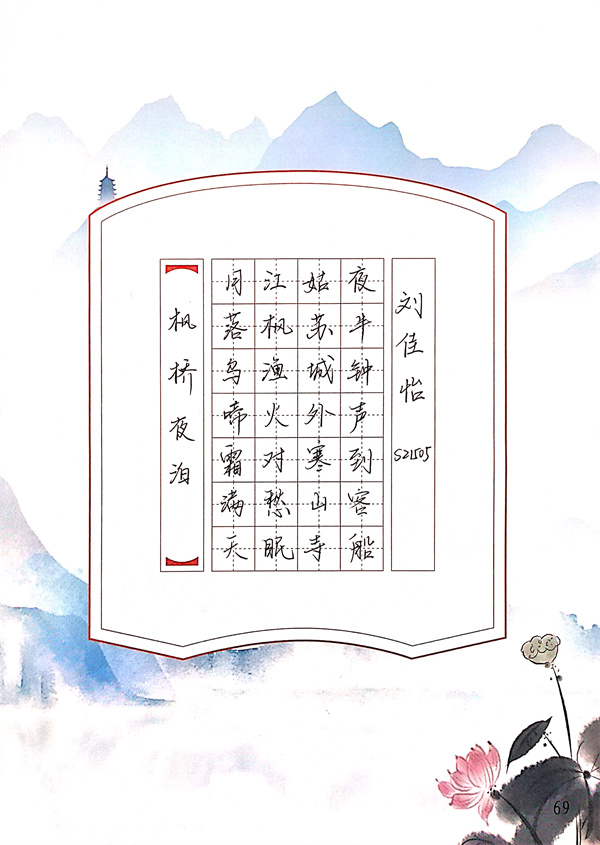 枫桥夜泊
月落乌啼霜满天
江枫渔火对愁眠
姑苏城外寒山寺
夜半钟声到客船
刘佳怡 S21505
69